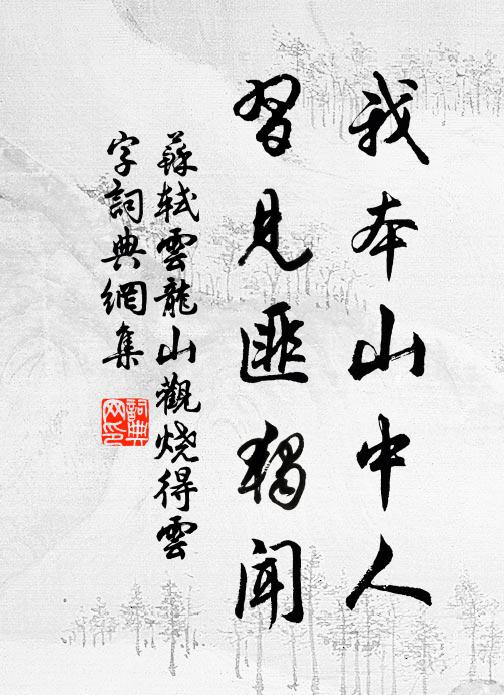 我本山中人
習見匪獨聞
蘇軾雲龍山觀燒得雲
字詞典網集
詞典網印